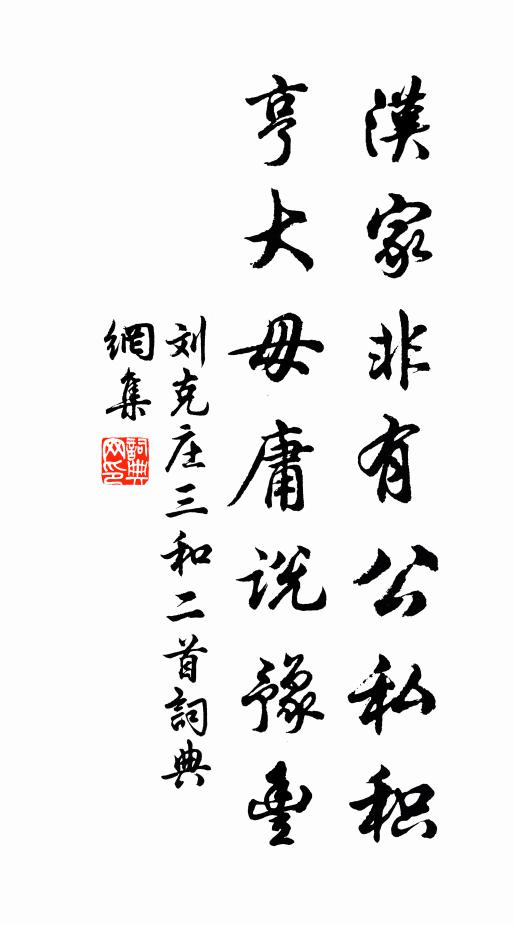 漢家非有公私积
亨大毋庸说豫豐
刘克庄三和二首詞典
網集
詞典网印